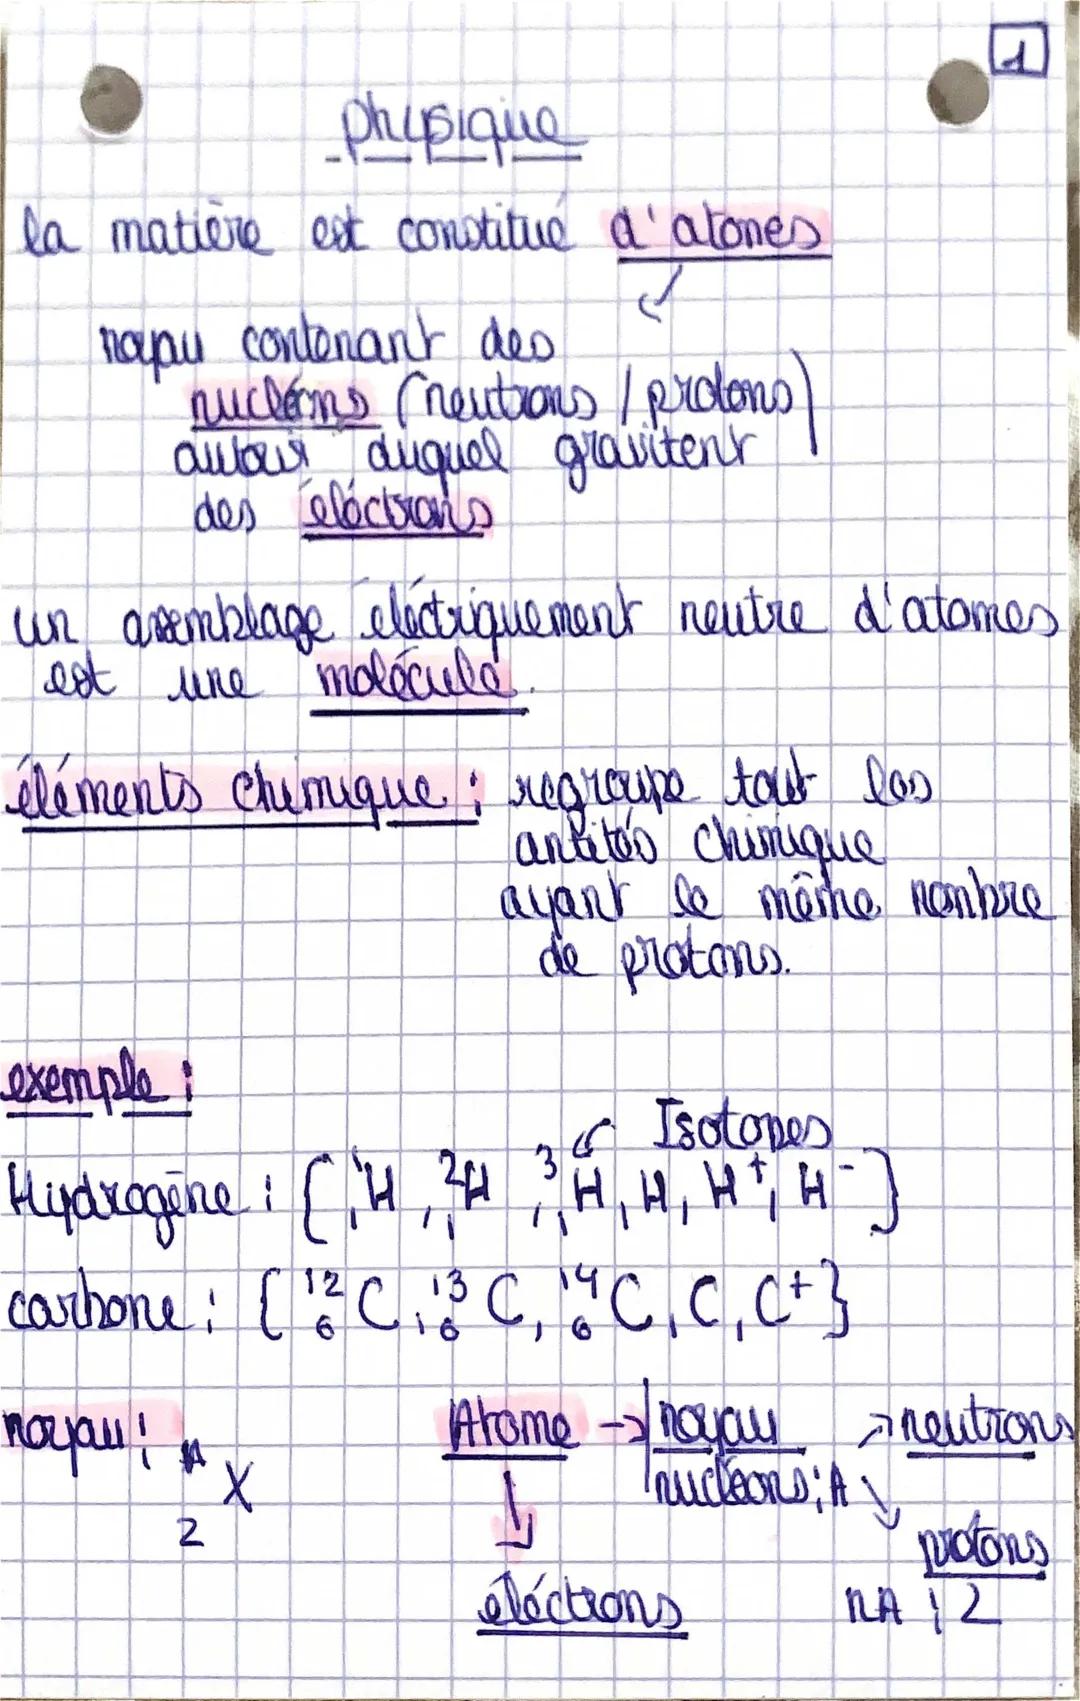 1
physique
la matière est constitué d'atomes
noyau contenant des
nucléons (neutrons / protons)
autour duquel gravitent
des éléctrons
un assemblage éléctriquement neutre d'atomes
est une molécule.
éléments chimique : regroupe tout les
antités chimique
ayant le même nombre
de protons.
exemple :
Isotopes
Hydrogène : { ¹₁H, ²₁H, ³₁H, H, H⁺, H⁻ }
carbone : { ¹²₆C, ¹³₆C, ¹⁴₆C, C, C⁺ }
noyau : A X Z
Atome → noyau ↗ neutrons
nucléons : A ↘
protons
éléctrons nA : Z